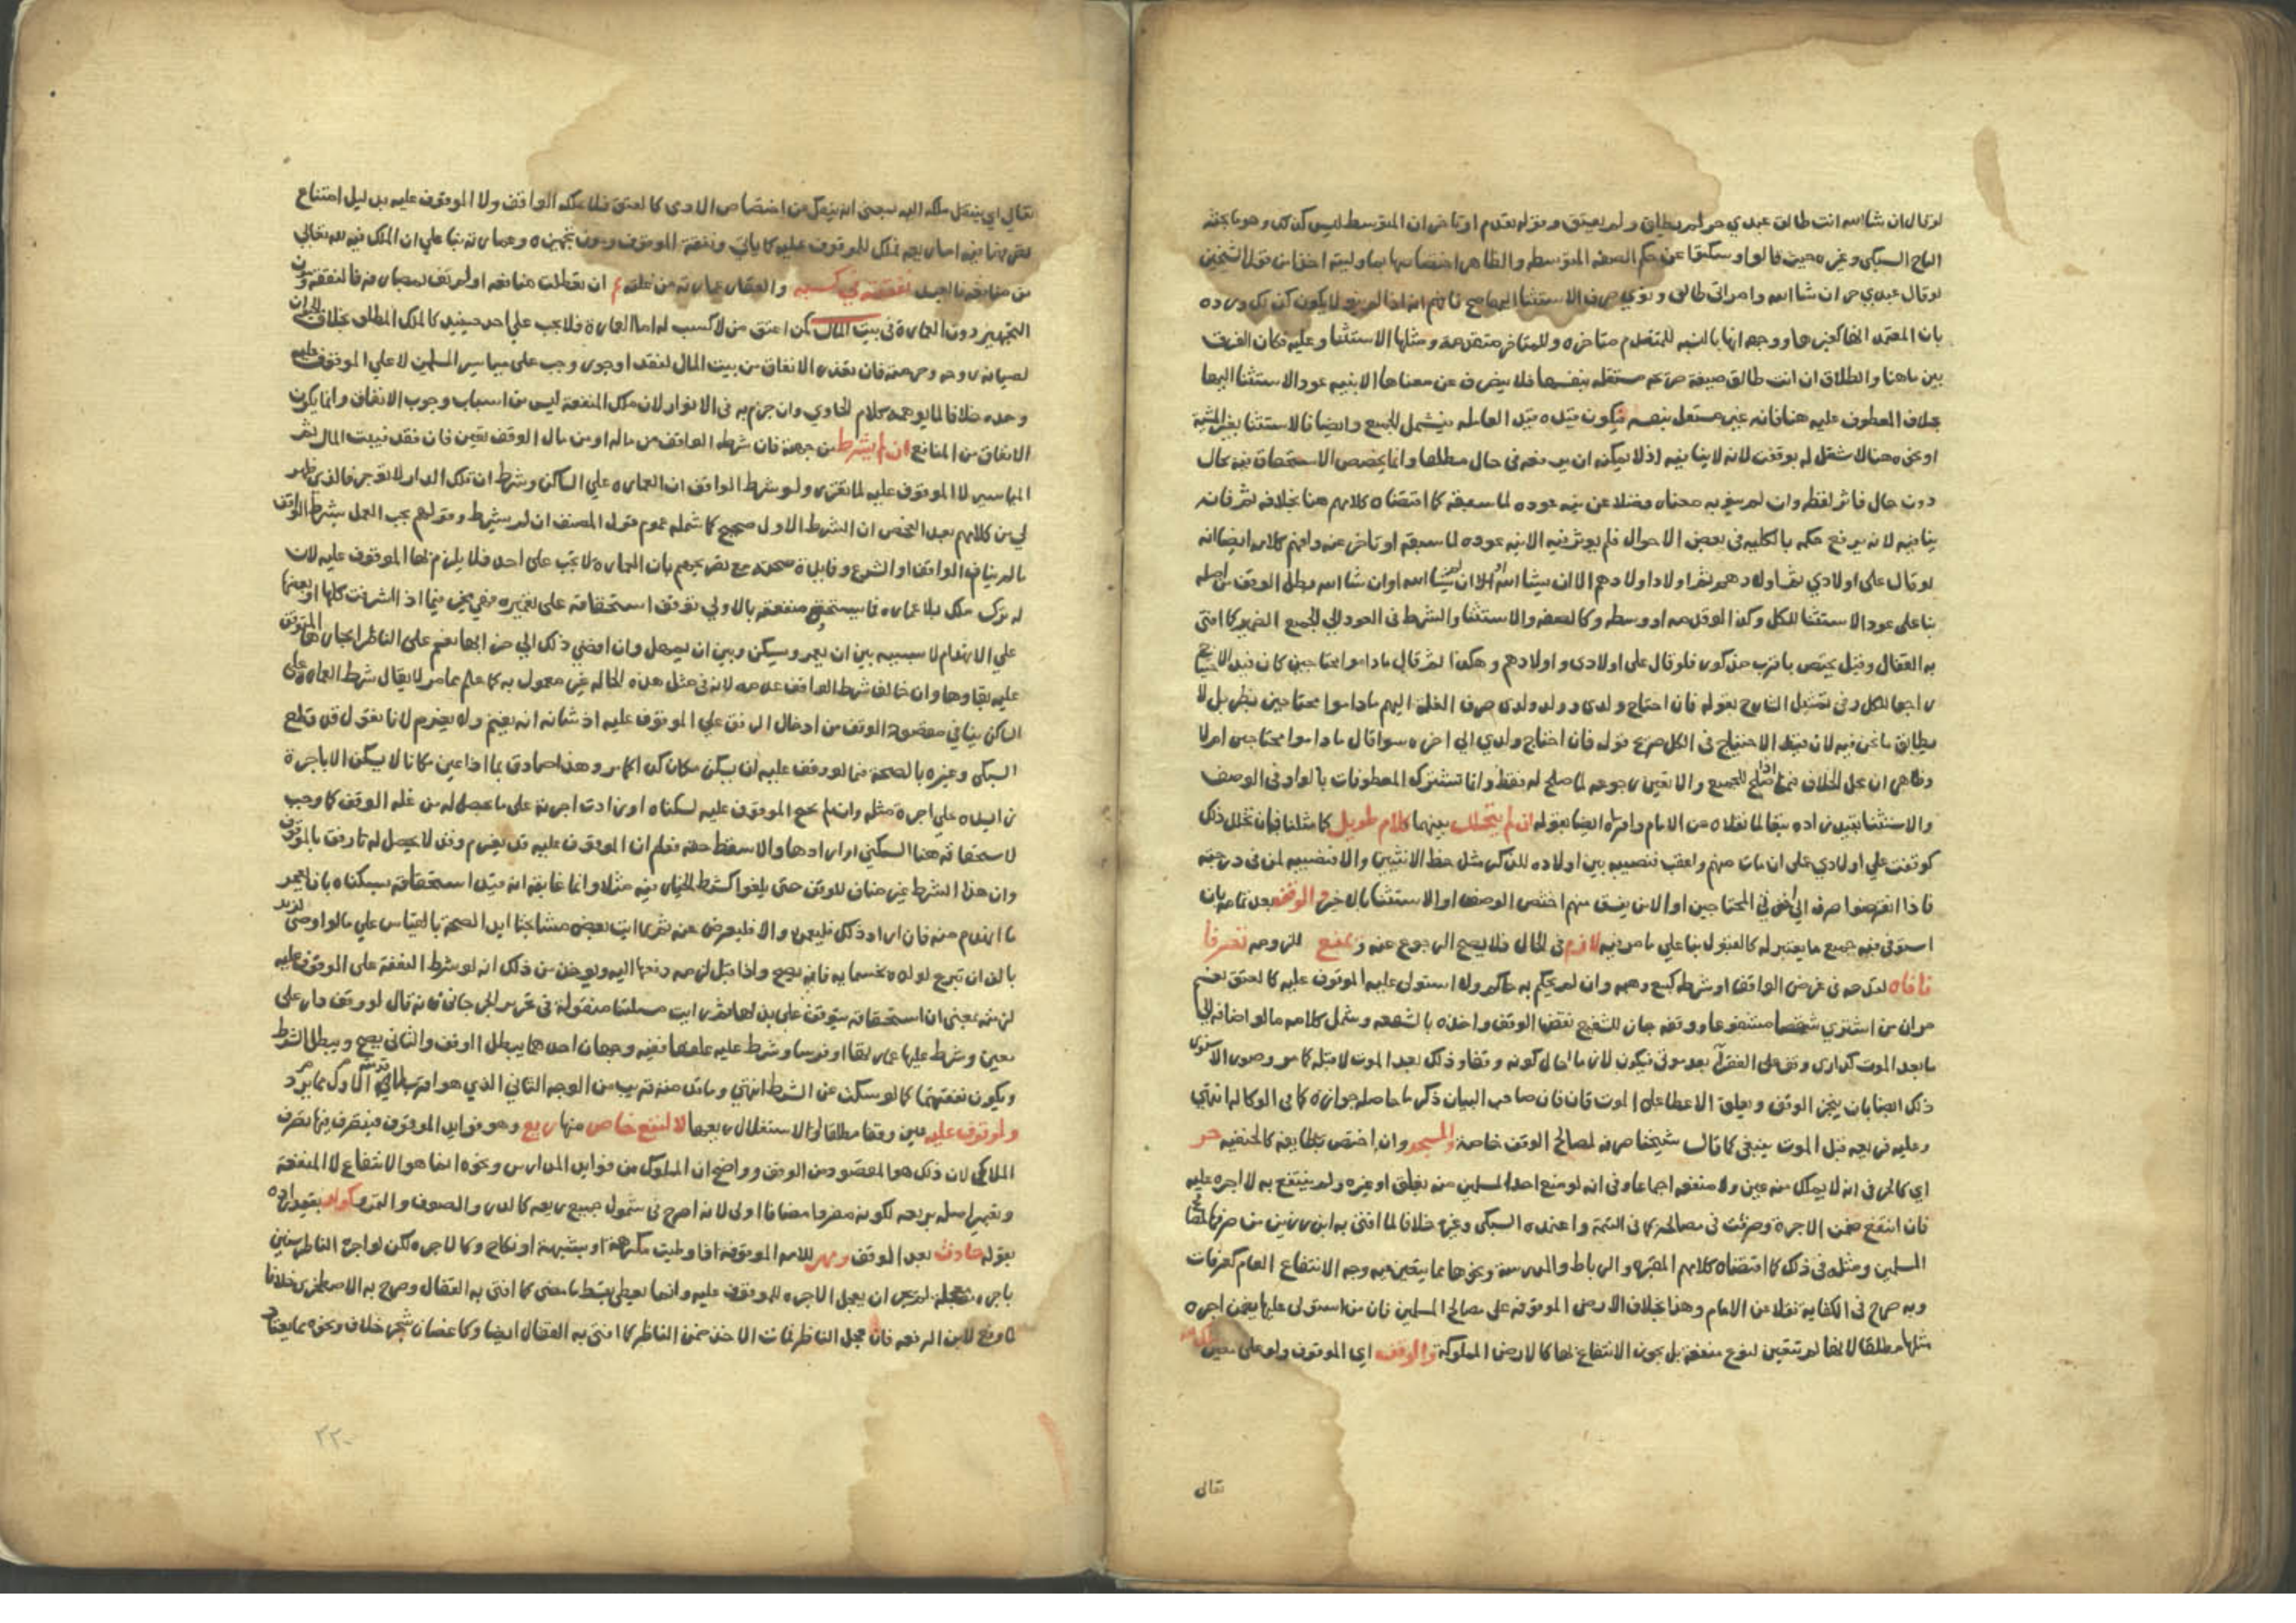 لو قال ان شا الله انت طالق عبدي حر لم يطلق ولم يعتق وقوله تقدم او تاخر ان المتوسط ليس كذلك وهو ما بحثه
التاج السبكي وغيره حيث قالوا وسكتوا عن حكم الصفة المتوسطة والظاهر اختصاصها بما وليته اخذا من نقل الشيخين
لو قال عبدي حر ان شا الله وامراتي طالق ونوي صرف الاستثنا اليهما صح فافهم انه اذا لم ينو لا يكون كذلك ورده
بان المعتمد انها كغيرها ووجهه انها بالنسبة للمتقدم متاخرة وللمتاخر متقدمة ومثلها الاستثنا وعليه فكان الفرق
بين ما هنا والطلاق ان انت طالق صيغة صريحة مستقلة بنفسها فلا يصرف عن معناها الا بنية عود الاستثنا اليها
بخلاف المعطوف عليه هنا فانه غير مستقل بنفسه فيكون قيده قيد العامله فيشمل الجميع وايضا فالاستثنا بغير المشية
او نحوه هنا لا شغل له بوقفت لانه لا ينافيه اذ لا يمكنه ان يرفعه في حال مطلقا وانما يخصص الاستحقاق فيه بحال
دون حال فاثر لفظه وان لم ينو به معناه فضلا عن نية عوده لما سبقه كما اقتضاه كلامهم هنا بخلافه ثم فانه
ينافيه لانه يرفع حكمه بالكلية في بعض الاحوال فلم يوثر فيه الا نية عوده لما سبقه او تاخر عنه وافهم كلامه ايضا انه
لو قال على اولادي ثم اولادهم ثم اولاد اولادهم الا ان يشا الله او الا ان لم يشا الله او ان شا الله بطل الوقف من اصله
بنا على عود الاستثنا للكل وكذا لو قدمه او وسطه وكالصفة والاستثنا والشرط في العود الي الجميع الضمير كما افتى
به القفال وقيل يختص باقرب مذكور فلو قال على اولادي واولادهم وهكذا ثم قال ما داموا محتاجين كان قيد الاحتياج
راجعا للكل وفي تمثيل الشارح بقوله فان احتاج ولدي وولد ولدي صرف الغلة اليهم ما داموا محتاجين نظر بل لا
يطابق ما نحن فيه لان قيد الاحتياج في الكل صريح قوله فان احتاج ولدي الي اخره سوا قال ما داموا محتاجين ام لا
وظاهر ان محل الخلاف فيما اذا صلح للجميع والا تعين رجوعه لما صلح له فقط وانما تشترك المعطوفات بالواو في الوصف
والاستثنا بقيد زاده تبعا لما نقلاه عن الامام واقراه ايضا بقوله ان لم يتخلل بينهما كلام طويل كما مثلنا فان تخلل ذلك
كوقفت علي اولادي على ان مات منهم واعقب فنصيبه بين اولاده للذكر مثل حظ الانثيين والا فنصيبه لمن في درجته
فاذا انقرضوا صرف الي اخوتي المحتاجين او الا ان يفسق منهم اختص الوصف او الاستثنا بالاخير والوقف بعد تمامه بان
استوفى فيه جميع ما يعتبر له كالقبول بنا علي ما مر فيه لازم في الحال فلا يصح الرجوع عنه ويمنع للزومه تصرفا
نافاه لعدمه في غرض الواقف او شرطه كبيع وهبه وان لم يحكم به حاكم ولا استولى عليه الموقوف عليه كالعتق نعم
مر ان من اشترى شقصا مشفوعا ووقفه جاز للشفيع نقض الوقف واخذه بالشفعه وشمل كلامه ما لو اضافه الي
ما بعد الموت كداري وقف على الفقرا بعد موتي فيكون لازما حال كونه وقفا وذلك بعد الموت لا قبله كما مر وصوب الاسنوى
ذلك ايضا بان ينجز الوقف ويعلق الاعطا على الموت فان صاحب البيان ذكر ما حاصله جوازه كما في الوكالة انتهي
وعليه فريعه قبل الموت ينبغي كما قال شيخنا صرفه لمصالح الوقف خاصة والمسجد وان اختص بطايفة كالحنفيه حر
اي كالحر في انه لا يملك منه عين ولا منفعه اجماعا وفي انه لو منع احد المسلمين منه بغلق او غيره ولم ينتفع به لا اجره عليه
فان انتفع ضمن الاجرة وصرفت في مصالحه كما في التتمة واعتمده السبكي وغيره خلافا لما افتى به ابن رزين من صرفها لمصالح
المسلمين ومثله في ذلك كما اقتضاه كلامهم المقبره والرباط والمدرسة ونحوها مما يتعين فيه وجه الانتفاع العام كعرفات
وبه صرح في الكفاية نقلا عن الامام وهذا بخلاف الارض الموقوفه على مصالح المسلمين فان من استولى عليها يضمن اجره
مثلها مطلقا لانها لم تتعين لنوع منفعة بل يجوز الانتفاع بها كالارض المملوكة والوقف اي الموقوف ولو على معين ملكه
تعالى
تعالي اي ينتقل ملكه اليه بمعنى انه ينفك عن اختصاص الادمي كالعتق فلا يملكه الواقف ولا الموقوف عليه بدليل امتناع
تصرفهما فيه اما ريعه فملك للموقوف عليه كما ياتي ونفقة الموقوف ومون تجهيزه وعمارته بنا علي ان الملك فيه لله تعالي
من منافعه فالعبد نفقته في كسبه والعقار عمارته من غلته ثم ان تعطلت منافعه او لم تف بمصارفه فالنفقة ومون
التجهيز دون العمارة في بيت المال كمن اعتق من لا كسب له اما العمارة فلا يجب علي احد حينيذ كالملك المطلق بخلاف الحيوان
لصيانة روحه وحرمته فان تعذر الانفاق من بيت المال لفقد او جور وجب على مياسير المسلمين لا علي الموقوف عليه
وحده خلافا لما يوهمه كلام الحاوي وان جزم به في الانوار لان ملك المنفعة ليس من اسباب وجوب الانفاق وانما يكون
الانفاق من المنافع ان لم يشرط من جهة فان شرطه الواقف من ماله او من مال الوقف تعين فان فقد فبيت المال ثم
المياسير لا الموقوف عليه لما تقرر ولو شرط الواقف ان العماره علي الساكن وشرط ان تلك الدار لا توجر فالذي ظهر
لي من كلامهم بعد الفحص ان الشرط الاول صحيح كما شمله عموم قول المصنف ان لم يشرط وقولهم يجب العمل بشرط الواقف
ما لم يناف الوقف او الشرع وفايدة صحته مع تصريحهم بان العمارة لا تجب على احد فلا يلزم بها الموقوف عليه لان
له ترك ملكه بلا عماره فما يستحق منفعته بالاولى توقف استحقاقه على تعميره فهو مخير فيما اذا اشرفت كلها او بعضها
علي الانهدام لا بسببه بين ان يعمر ويسكن وبين ان يهمل وان افضي ذلك الي خرابها نعم على الناظر ايجارها المتوقف
عليه بقاوها وان خالف شرط الواقف عدمه لانه في مثل هذه الحاله غير معمول به كما علم مما مر لا يقال شرط العماره على
الساكن ينافي مقصود الوقف من ادخال الرفق علي الموقوف عليه اذ شانه انه يغنم ولا يغرم لانا نقول قد قطع
السبكي وغيره بالصحة فيما لو وقف عليه ان يسكن مكان كذا كما مر وهذا صادق بما اذا عين مكانا لا يسكن الا باجرة
زايده علي اجرة مثله وان لم يحتج الموقوف عليه لسكناه او زادت اجرته على ما يحصل له من غلة الوقف كما وجب
لاستحقاقه هنا السكني ان ارادها والا سقط حقه فعلم ان الموقوف عليه قد يغرم وقد لا يحصل له رفق بالموقوف
وان هذا الشرط غير مناف للوقف حتى يلغوا كشرط الخيار فيه مثلا وانما غايته انه قيد استحقاقه سكناه بان يعمر
ما انهدم منه فان اراد ذلك فليعمر والا فليعرض عنه ثم رايت بعض مشايخنا ايد الصحة بالقياس علي ما لو اوصى لزيد
بالف ان تبرع لولده بخمسمايه فانه يصح واذا قبل لزمه دفعها اليه ويوخذ من ذلك انه لو شرط النفقة على الموقوف عليه
لزمته بمعنى ان استحقاقه يتوقف على بذلها ثم رايت مسئلتنا منقولة في تحرير الجرجاني فانه قال لو وقف دار على
معين وشرط عليها عمارتها او فرسا وشرط عليه علفها ففيه وجهان احدهما يبطل الوقف والثاني يصح ويبطل الشرط
ويكون نفقتهما كما لو سكت عن الشرط انتهي وما قدمته قريب من الوجه الثاني الذي هو اقرب مما يرد
ولموقوف عليه عين وقفا مطلقا او لاستغلال ريعها لا لنفع خاص منها ريع وهو فوايد الموقوف فيتصرف فيها تصرف
الملاك لان ذلك هو المقصود من الوقف وواضح ان المملوك من فوايد المدارس ونحوه انما هو الانتفاع لا المنفعة
وتعبير اصله بريعه لكونه مفردا مضافا اولى لانه اصرح في شمول جميع ريعه كالدر والصوف والثمر وكولد بقيد زاده
بقوله حادث بعد الوقف ومهر للامة الموقوفة اذا وطيت مكرهة او بشبهة او نكاح وكالاجره لكن لو اجر الناظر سنين
باجره معجلة لم يجز ان يعجل الاجره للموقوف عليه وانما يعطى بقسط ما مضى كما افتى به القفال وصرح به الاصطخري خلافا
لابن الرفعه فان عجل الناظر فمات الاخذ ضمن الناظر كما افتى به القفال ايضا وكاغصان شجر خلاف ونحوه مما يعتاد
٢٢٠